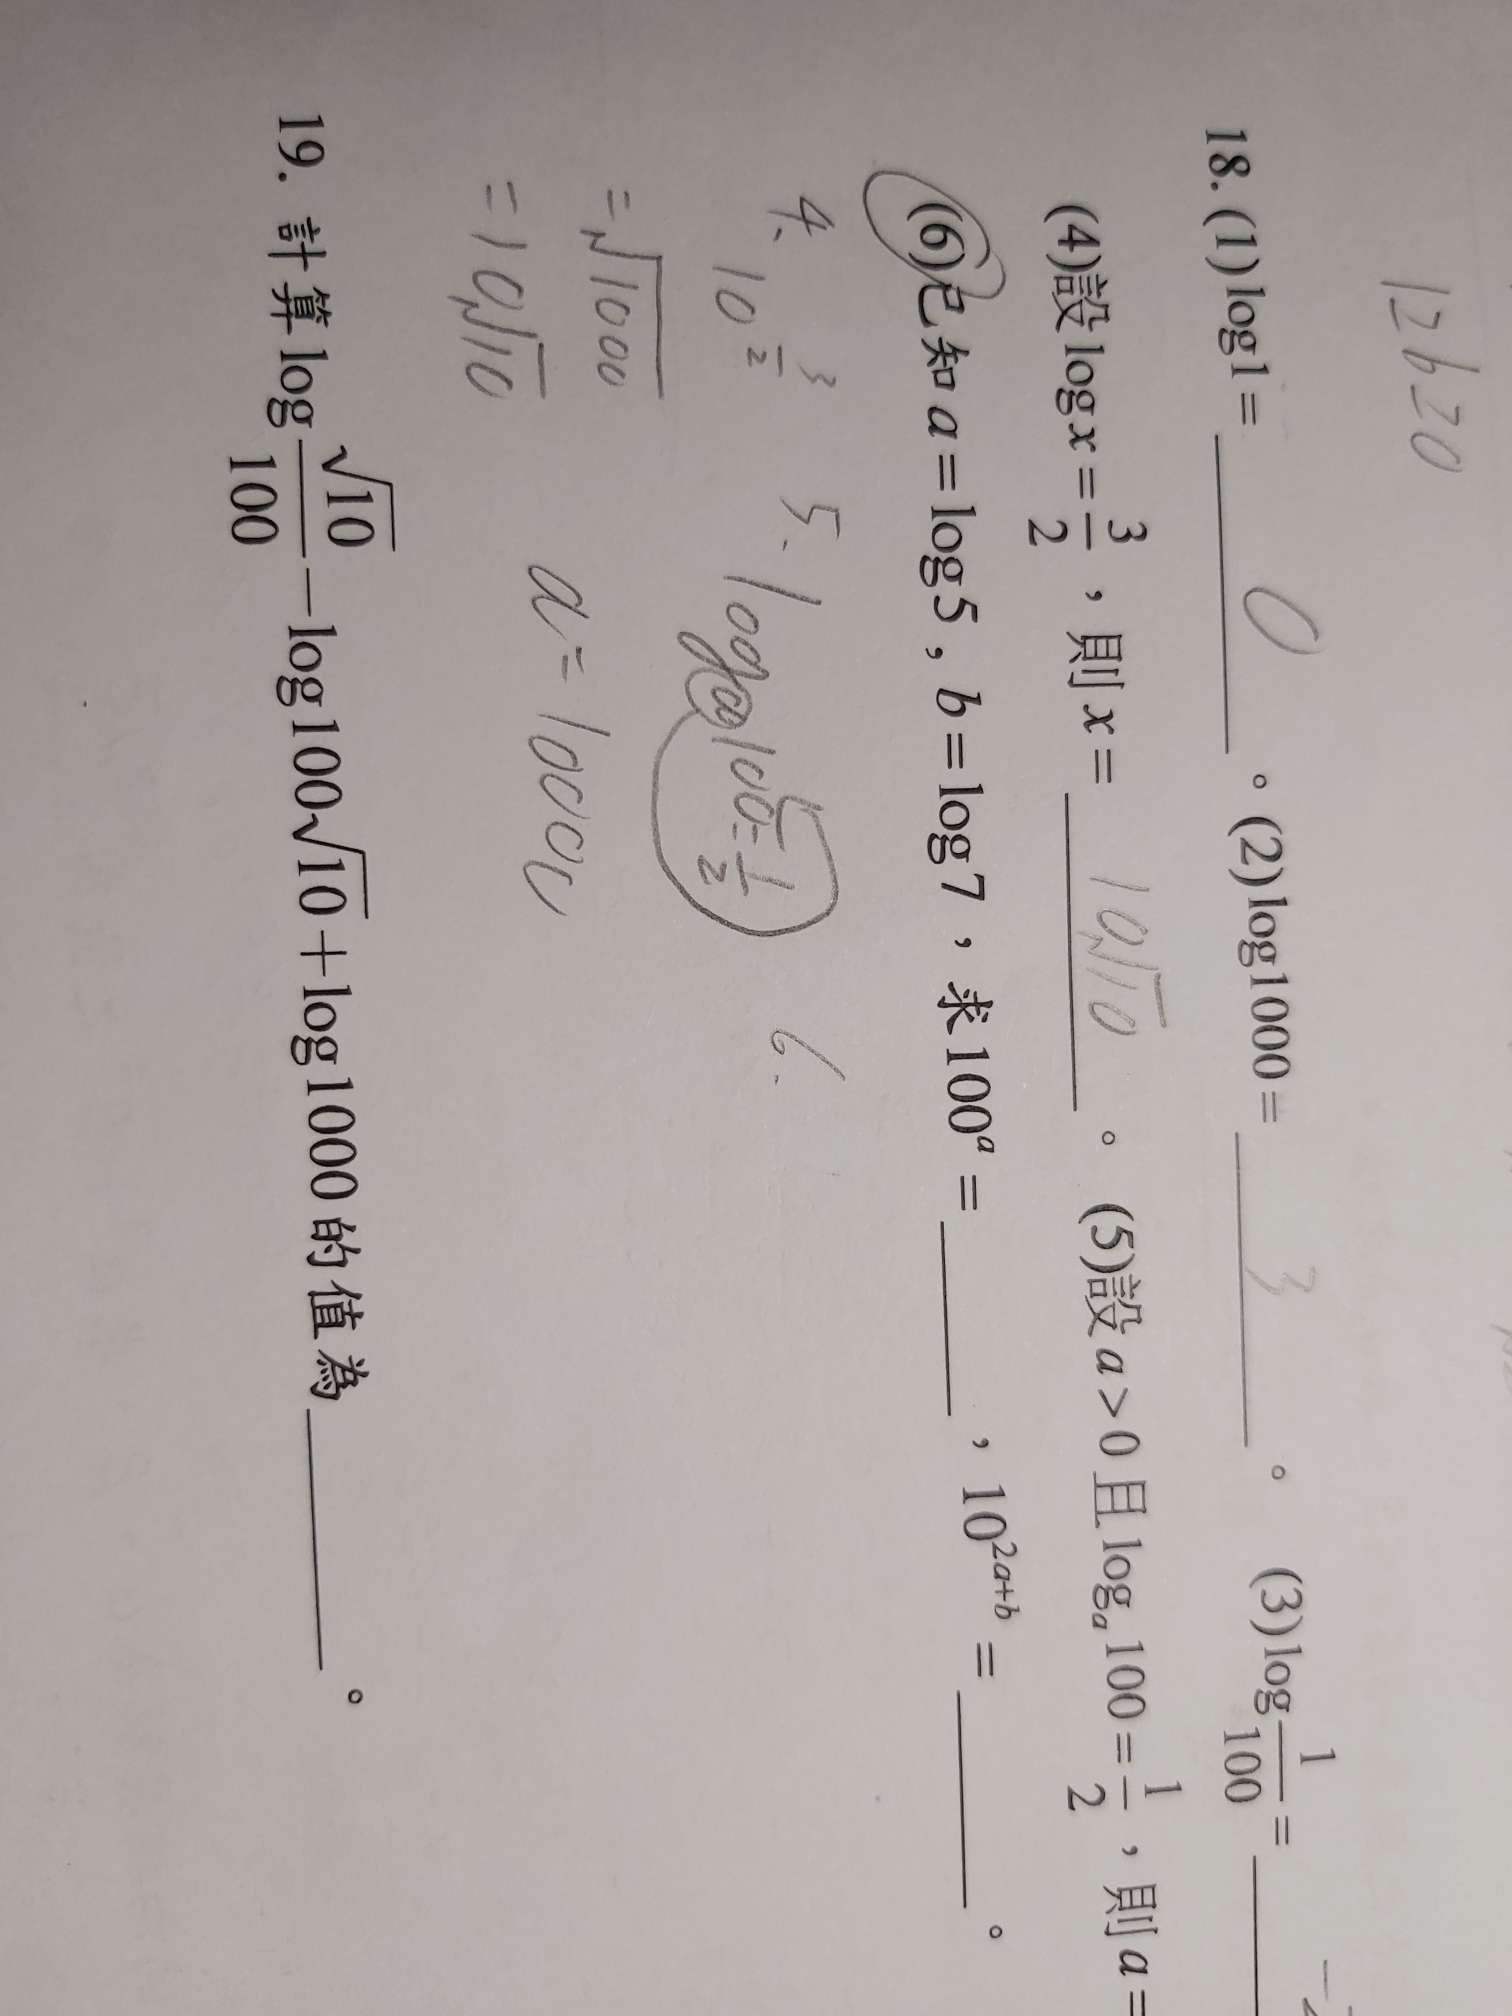 12620
18. (1) log1 = 0 。 (2) log1000 = 3 。 (3) log 1/100 = -2
(4)設 log x = 3/2 ，則 x = 10√10 。 (5)設 a > 0 且 logₐ100 = 1/2 ，則 a =
(6)已知 a = log5，b = log7，求 100ᵃ = ____ ，10²ᵃ⁺ᵇ = ____ 。
4. 10^(3/2)
= √1000
= 10√10
5. logₐ100 = 1/2
a = 10000
6.
19. 計算 log √10/100 − log100√10 + log1000 的值為 ____ 。